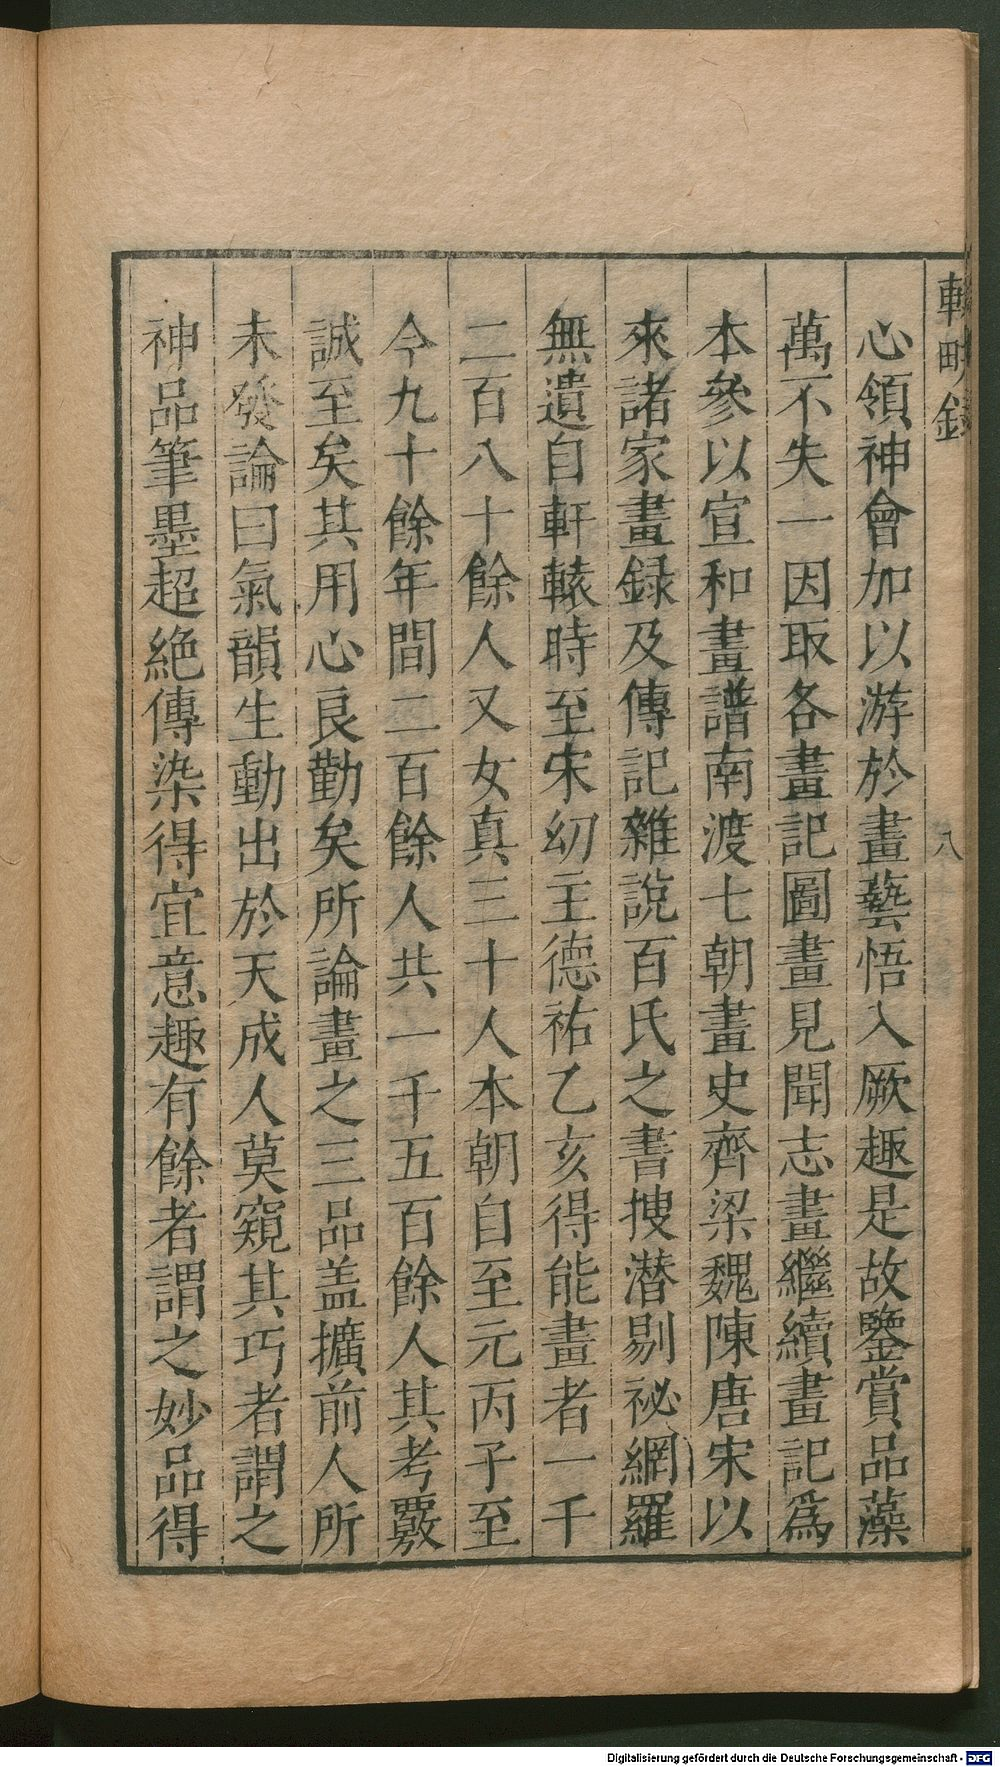 輟畊錄
八
心領神會加以游於畫藝悟入厥趣是故鑒賞品藻
萬不失一因取各畫記圖畫見聞志畫繼續畫記爲
本參以宣和畫譜南渡七朝畫史齊梁魏陳唐宋以
來諸家畫録及傳記雜說百氏之書搜潜剔祕網羅
無遺自軒轅時至宋幼主德祐乙亥得能畫者一千
二百八十餘人又女真三十人本朝自至元丙子至
今九十餘年間二百餘人共一千五百餘人其考覈
誠至矣其用心良勤矣所論畫之三品盖擴前人所
未發論曰氣韻生動出於天成人莫窺其巧者謂之
神品筆墨超絶傳染得宜意趣有餘者謂之妙品得
Digitalisierung gefördert durch die Deutsche Forschungsgemeinschaft - DFG